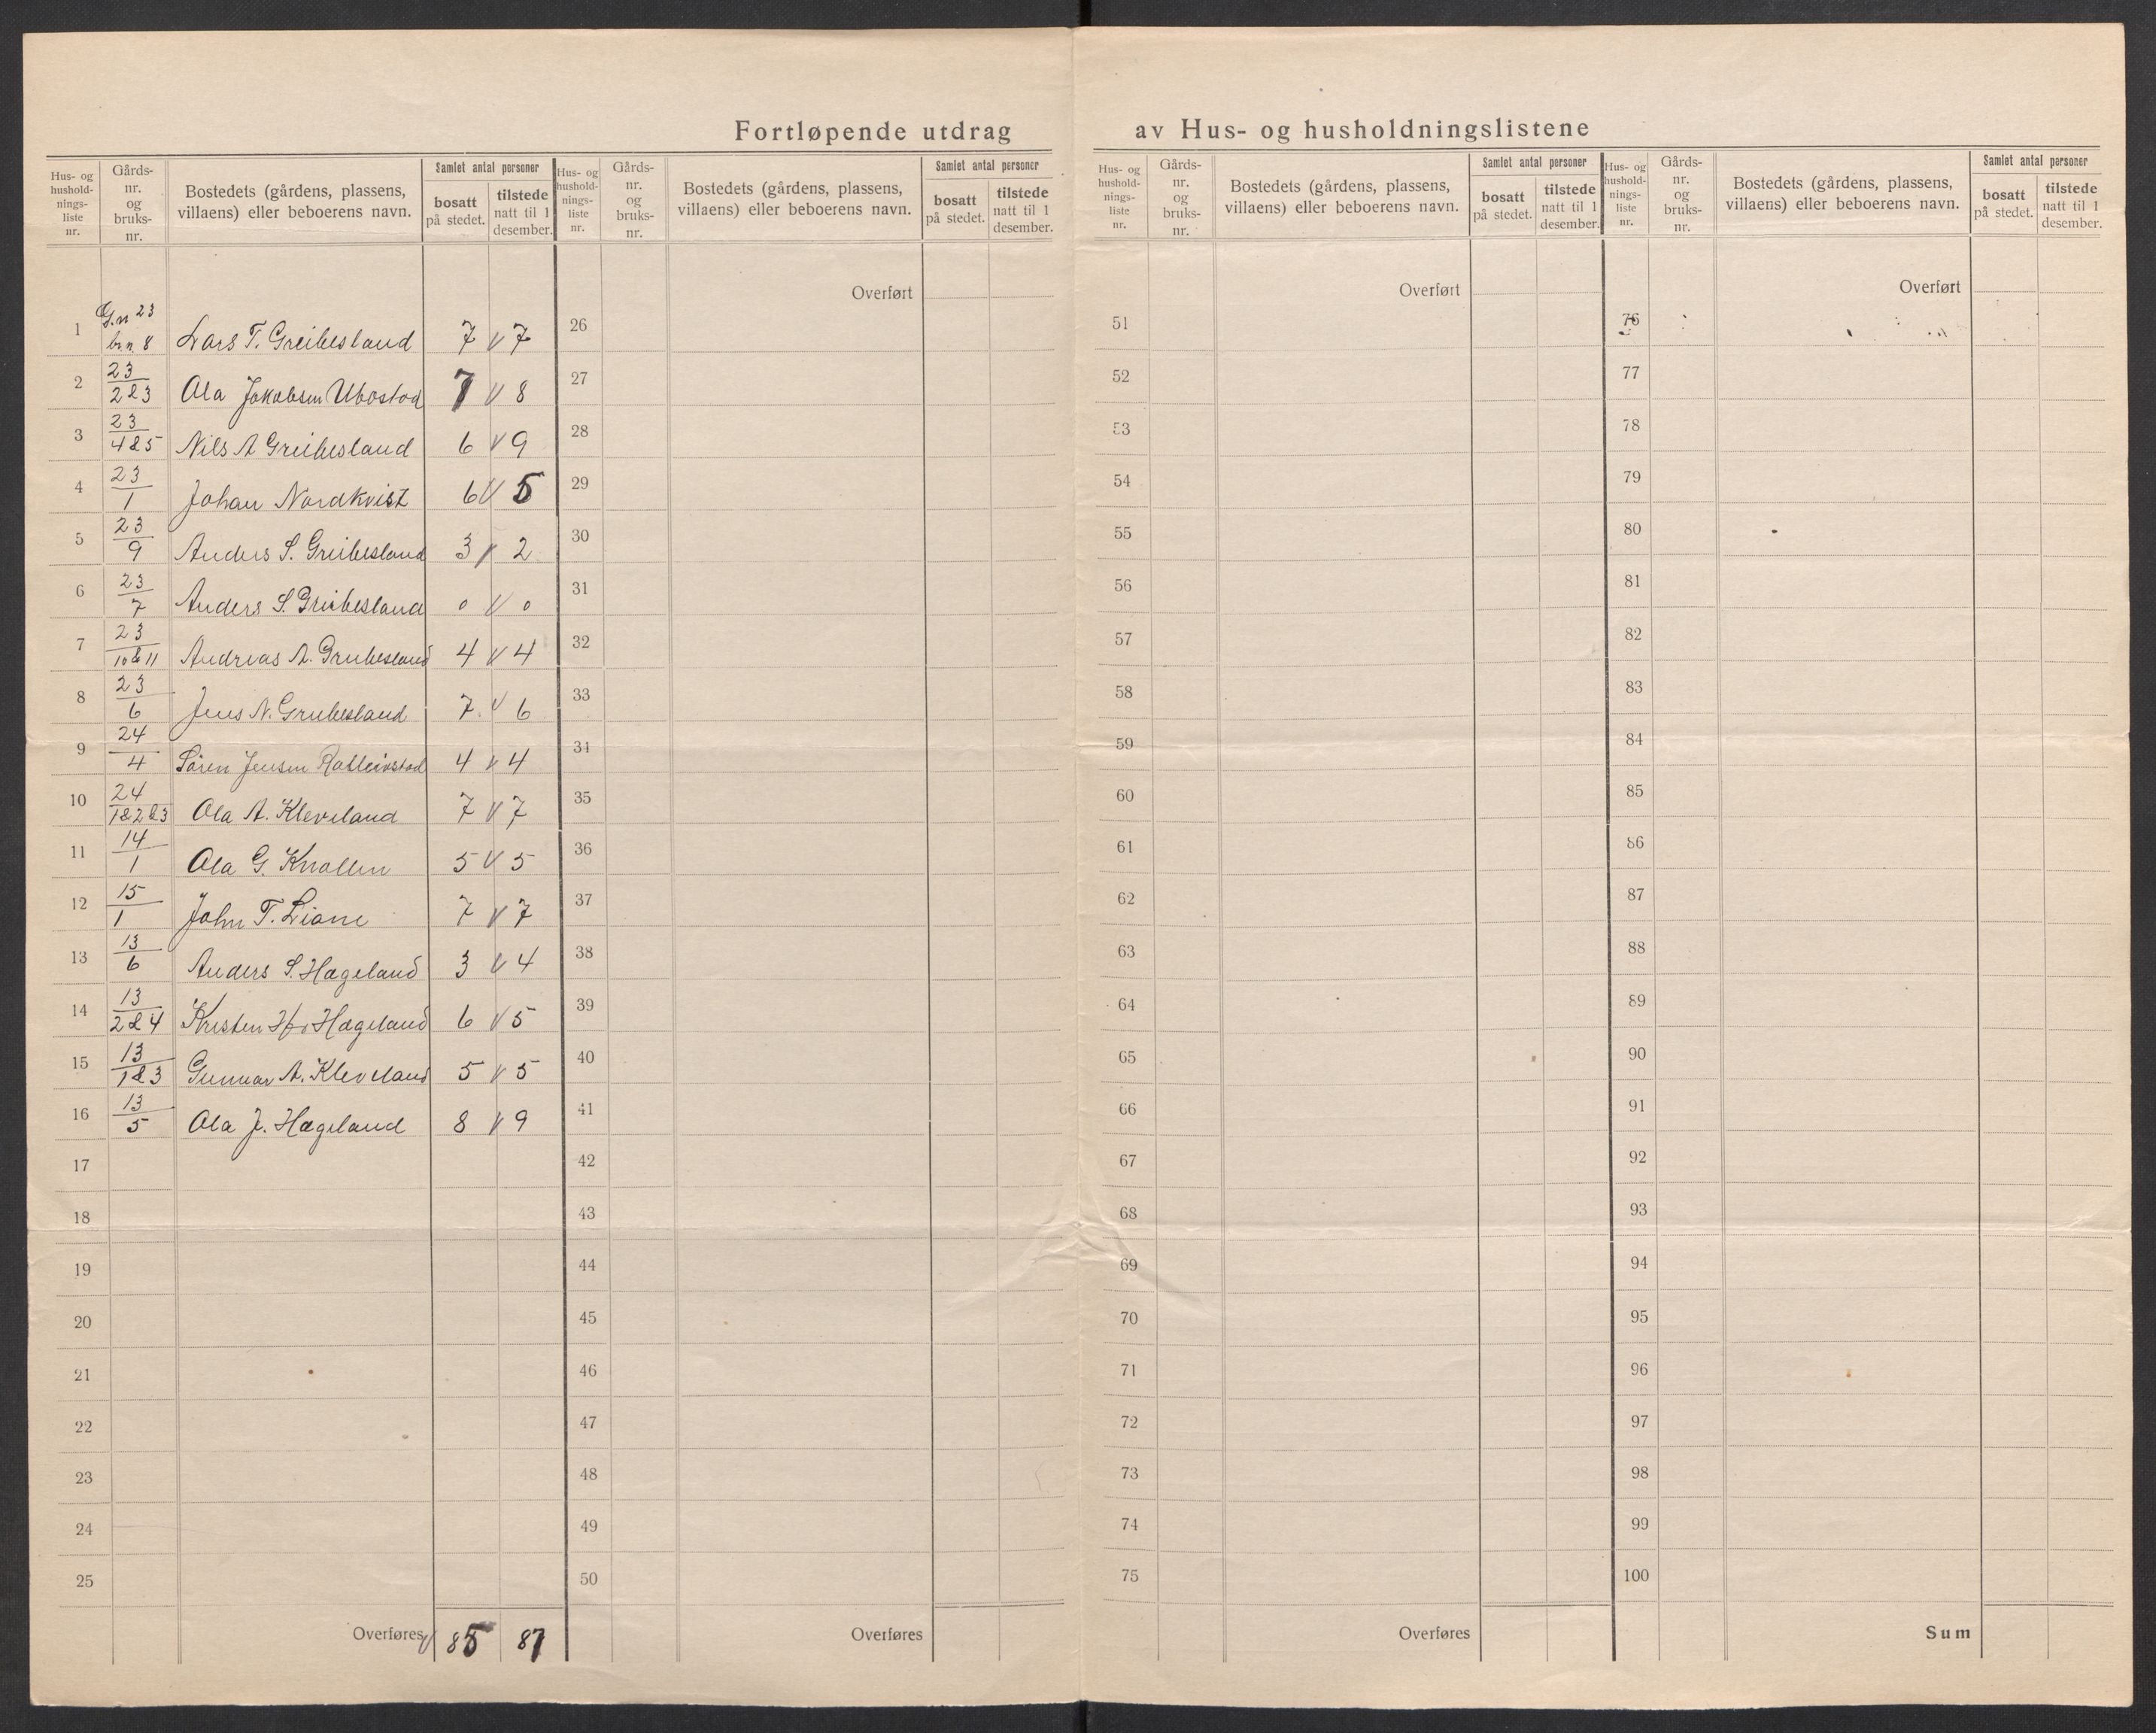 Fortløpende utdrag av Hus- og husholdningslistene
Hus- og hushold- nings- liste nr. | Gårds- nr. og bruks- nr. | Bostedets (gårdens, plassens, villaens) eller beboerens navn. | Samlet antal personer | bosatt på stedet. | tilstede natt til 1 desember.
1 | G.n 23 br.n. 8 | Lars T. Greibesland | 7 v 7
2 | 23 / 2&3 | Ola Jakobsen Ubostad | 7 v 8
3 | 23 / 4&5 | Nils A Greibesland | 6 v 9
4 | 23 / 1 | Johan Nordkvist | 6 v 5
5 | 23 / 9 | Anders S. Greibesland | 3 v 2
6 | 23 / 7 | Anders S. Greibesland | 0 v 0
7 | 23 / 10&11 | Andreas A. Greibesland | 4 v 4
8 | 23 / 6 | Jens N. Greibesland | 7 v 6
9 | 24 / 4 | Søren Jensen | 4 v 4
10 | 24 / 1&2&3 | Ola A. Kleveland | 7 v 7
11 | 14 / 1 | Ola G. Knollen | 5 v 5
12 | 15 / 1 | John T. Liane | 7 v 7
13 | 13 / 6 | Anders S. Hægeland | 3 v 4
14 | 13 / 2&4 | Kristen Hægeland | 6 v 5
15 | 13 / 1&3 | Gunnar A. Kleveland | 5 v 5
16 | 13 / 5 | Ola J. Hægeland | 8 v 9
17
18
19
20
21
22
23
24
25
Overføres v 85 | 87
Hus- og hushold- nings- liste nr. | Gårds- nr. og bruks- nr. | Bostedets (gårdens, plassens, villaens) eller beboerens navn. | Samlet antal personer | bosatt på stedet. | tilstede natt til 1 desember.
Overført
26
27
28
29
30
31
32
33
34
35
36
37
38
39
40
41
42
43
44
45
46
47
48
49
50
Overføres
Hus- og hushold- nings- liste nr. | Gårds- nr. og bruks- nr. | Bostedets (gårdens, plassens, villaens) eller beboerens navn. | Samlet antal personer | bosatt på stedet. | tilstede natt til 1 desember.
Overført
51
52
53
54
55
56
57
58
59
60
61
62
63
64
65
66
67
68
69
70
71
72
73
74
75
Overføres
Hus- og hushold- nings- liste nr. | Gårds- nr. og bruks- nr. | Bostedets (gårdens, plassens, villaens) eller beboerens navn. | Samlet antal personer | bosatt på stedet. | tilstede natt til 1 desember.
Overført
76
77
78
79
80
81
82
83
84
85
86
87
88
89
90
91
92
93
94
95
96
97
98
99
100
Sum